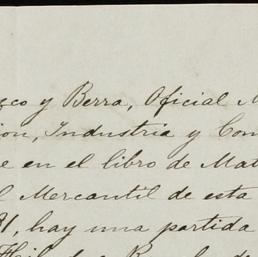 co y Berra, Oficial M
ion, Industria y Com
e en el libro de Mat
l Mercantil de esta
1, hay una partida